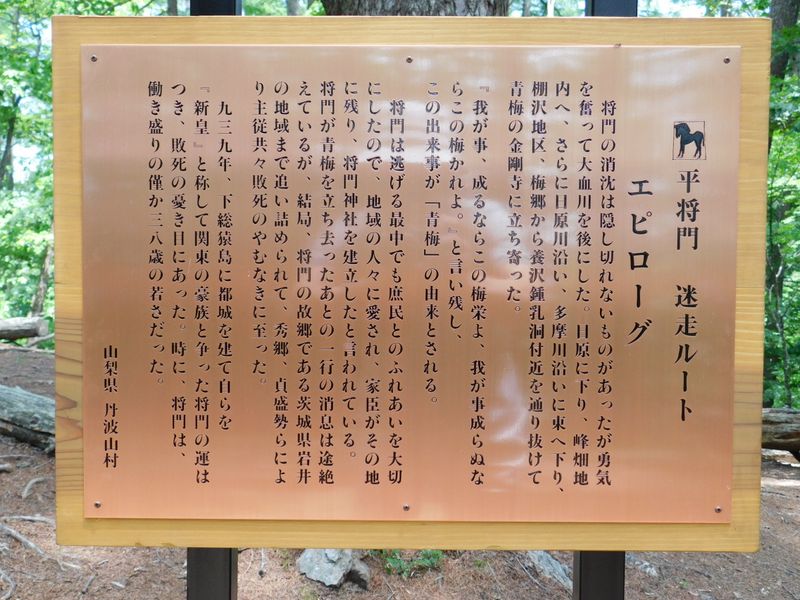 平将門　迷走ルート
エピローグ
将門の消沈は隠し切れないものがあったが勇気
を奮って大血川を後にした。日原に下り、峰畑地
内へ、さらに日原川沿い、多摩川沿いに東へ下り、
棚沢地区、梅郷から養沢鍾乳洞付近を通り抜けて
青梅の金剛寺に立ち寄った。
『我が事、成るならこの梅栄よ、我が事成らぬな
らこの梅かれよ。』と言い残し、
この出来事が「青梅」の由来とされる。
将門は逃げる最中でも庶民とのふれあいを大切
にしたので、地域の人々に愛され、家臣がその地
に残り、将門神社を建立したと言われている。
将門が青梅を立ち去ったあとの一行の消息は途絶
えているが、結局、将門の故郷である茨城県岩井
の地域まで追い詰められて、秀郷、貞盛勢らによ
り主従共々敗死のやむなきに至った。
九三九年、下総猿島に都城を建て自らを
『新皇』と称して関東の豪族と争った将門の運は
つき、敗死の憂き目にあった。時に、将門は、
働き盛りの僅か三八歳の若さだった。
山梨県 丹波山村